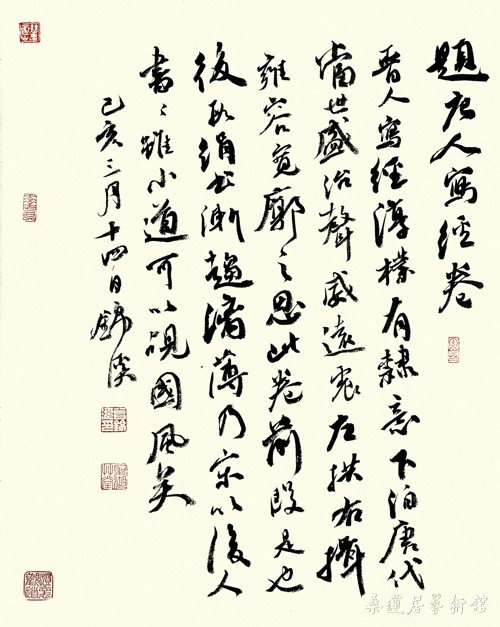 題唐人寫經卷
晉人寫經淳樸有隸意下洎唐代
當世盛治聲威遠裔左拱右攝
雍容寬廓之思此卷前段是也
後段絹書漸趨薄乃宋以後人
書〻雖小道可以覘國風矣
己亥三月十四日錦
桑蓮居藝術館